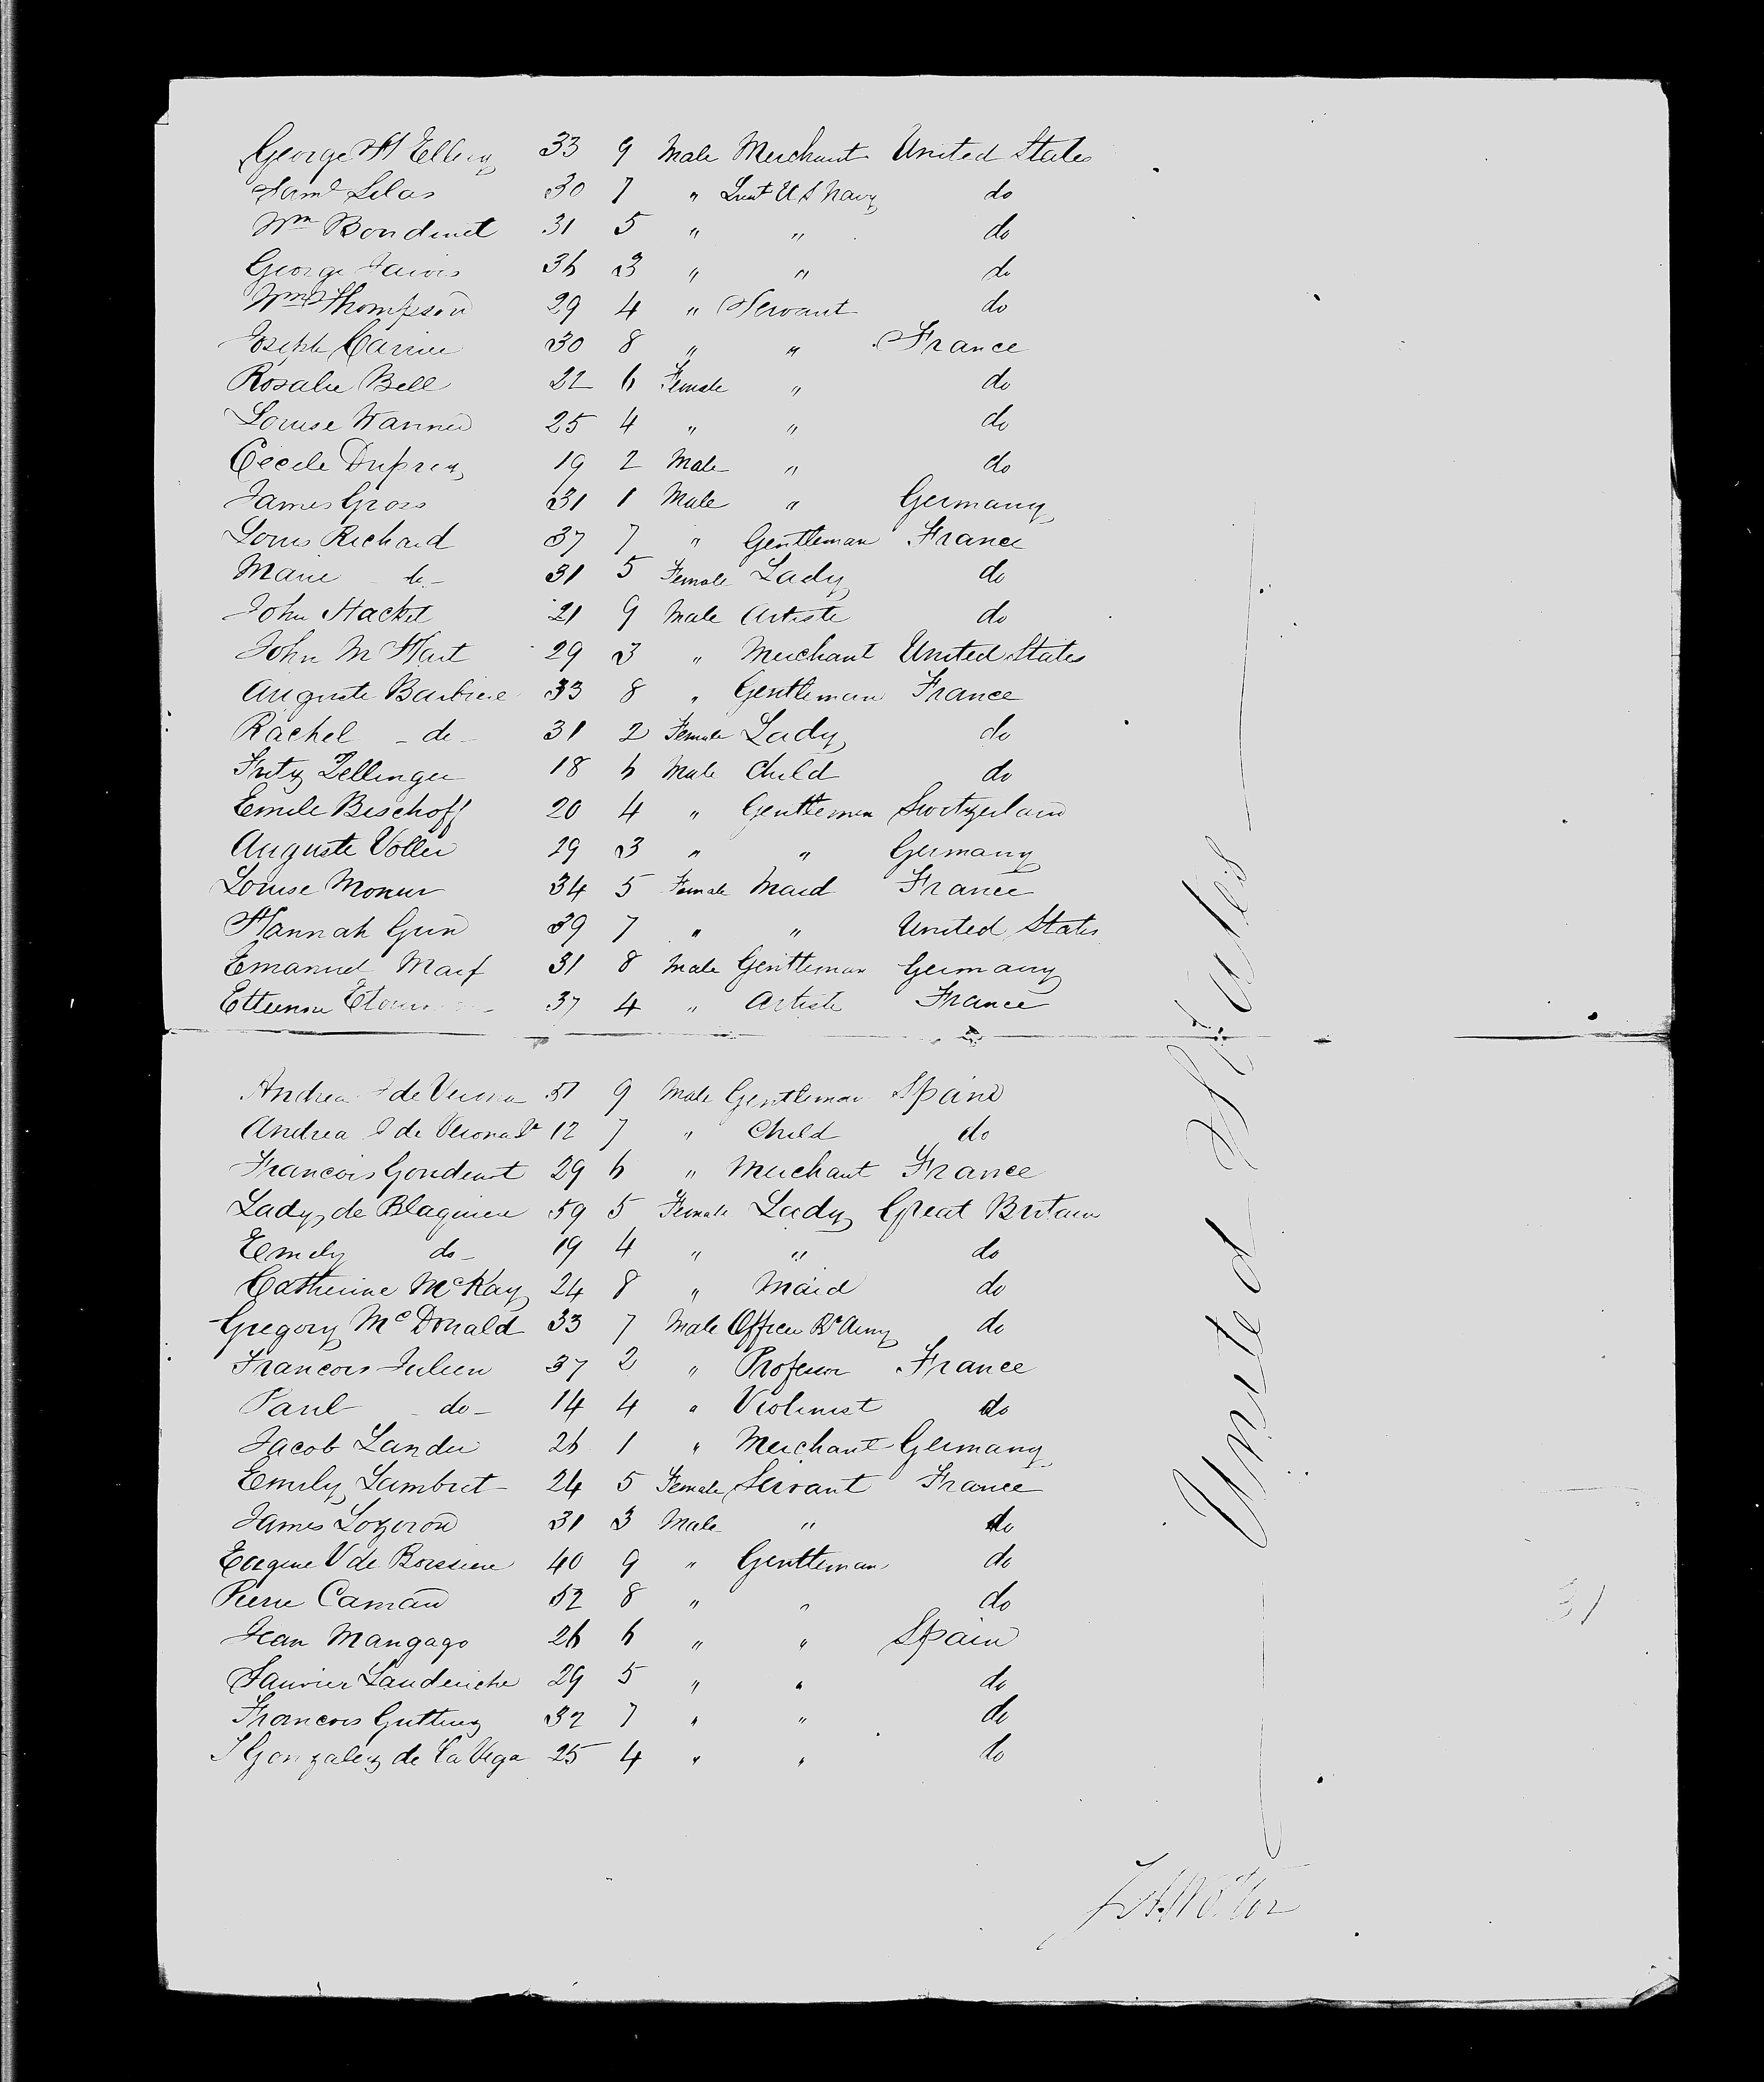 George H Ellery 33 9 Male Merchant United States
Saml Silas 30 7 " Lieut U S Navy do
Wm Bondinet 31 5 " " do
George Jarvis 36 3 " " do
Wm Thompson 29 4 " Servant do
Joseph Carrier 30 8 " " France
Rosalie Bell 22 6 Female " do
Louise Wanner 25 4 " " do
Cecile Duprey 19 2 Male " do
James Gross 31 1 Male " Germany
Louis Richard 37 7 " Gentleman France
Marie - do - 31 5 Female Lady do
John Hackel 21 9 Male Artiste do
John M Hart 29 3 " Merchant United States
Auguste Barbiere 33 8 " Gentleman France
Rachel - do - 31 2 Female Lady do
Fritz Zellinger 18 6 Male Child do
Emile Bischoff 20 4 " Gentleman Switzerland
Auguste Voller 29 3 " " Germany
Louise Moneur 34 5 Female Maid France
Hannah Gun 39 7 " " United States
Emanuel Marf 31 8 Male Gentleman Germany
Ettienne 37 4 " Artiste France
Andrea de 51 9 Male Gentleman Spain
Andrea J de Verona Jr 12 7 " Child do
Francois Goudent 29 6 " Merchant France
Lady de Blaquiere 59 5 Female Lady Great Britain
Emily do - 19 4 " " do
Catherine McKay 24 8 " Maid do
Gregory McDonald 33 7 Male Officer Br Army do
Francois Julien 37 2 " Professor France
Paul - do - 14 4 " Violinist do
Jacob Lander 26 1 " Merchant Germany
Emily Lambert 24 5 Female Servant France
James Lozeron 31 3 Male " do
Eugene V de Boissiere 40 9 " Gentleman do
Pierre Camaau 52 8 " " do
Jean Mangago 26 6 " " Spain
Saurier Lauderiche 29 5 " " do
Francois Gutting 32 7 " " do
S Gonzalez de La Vega 25 4 " " do
United States
31